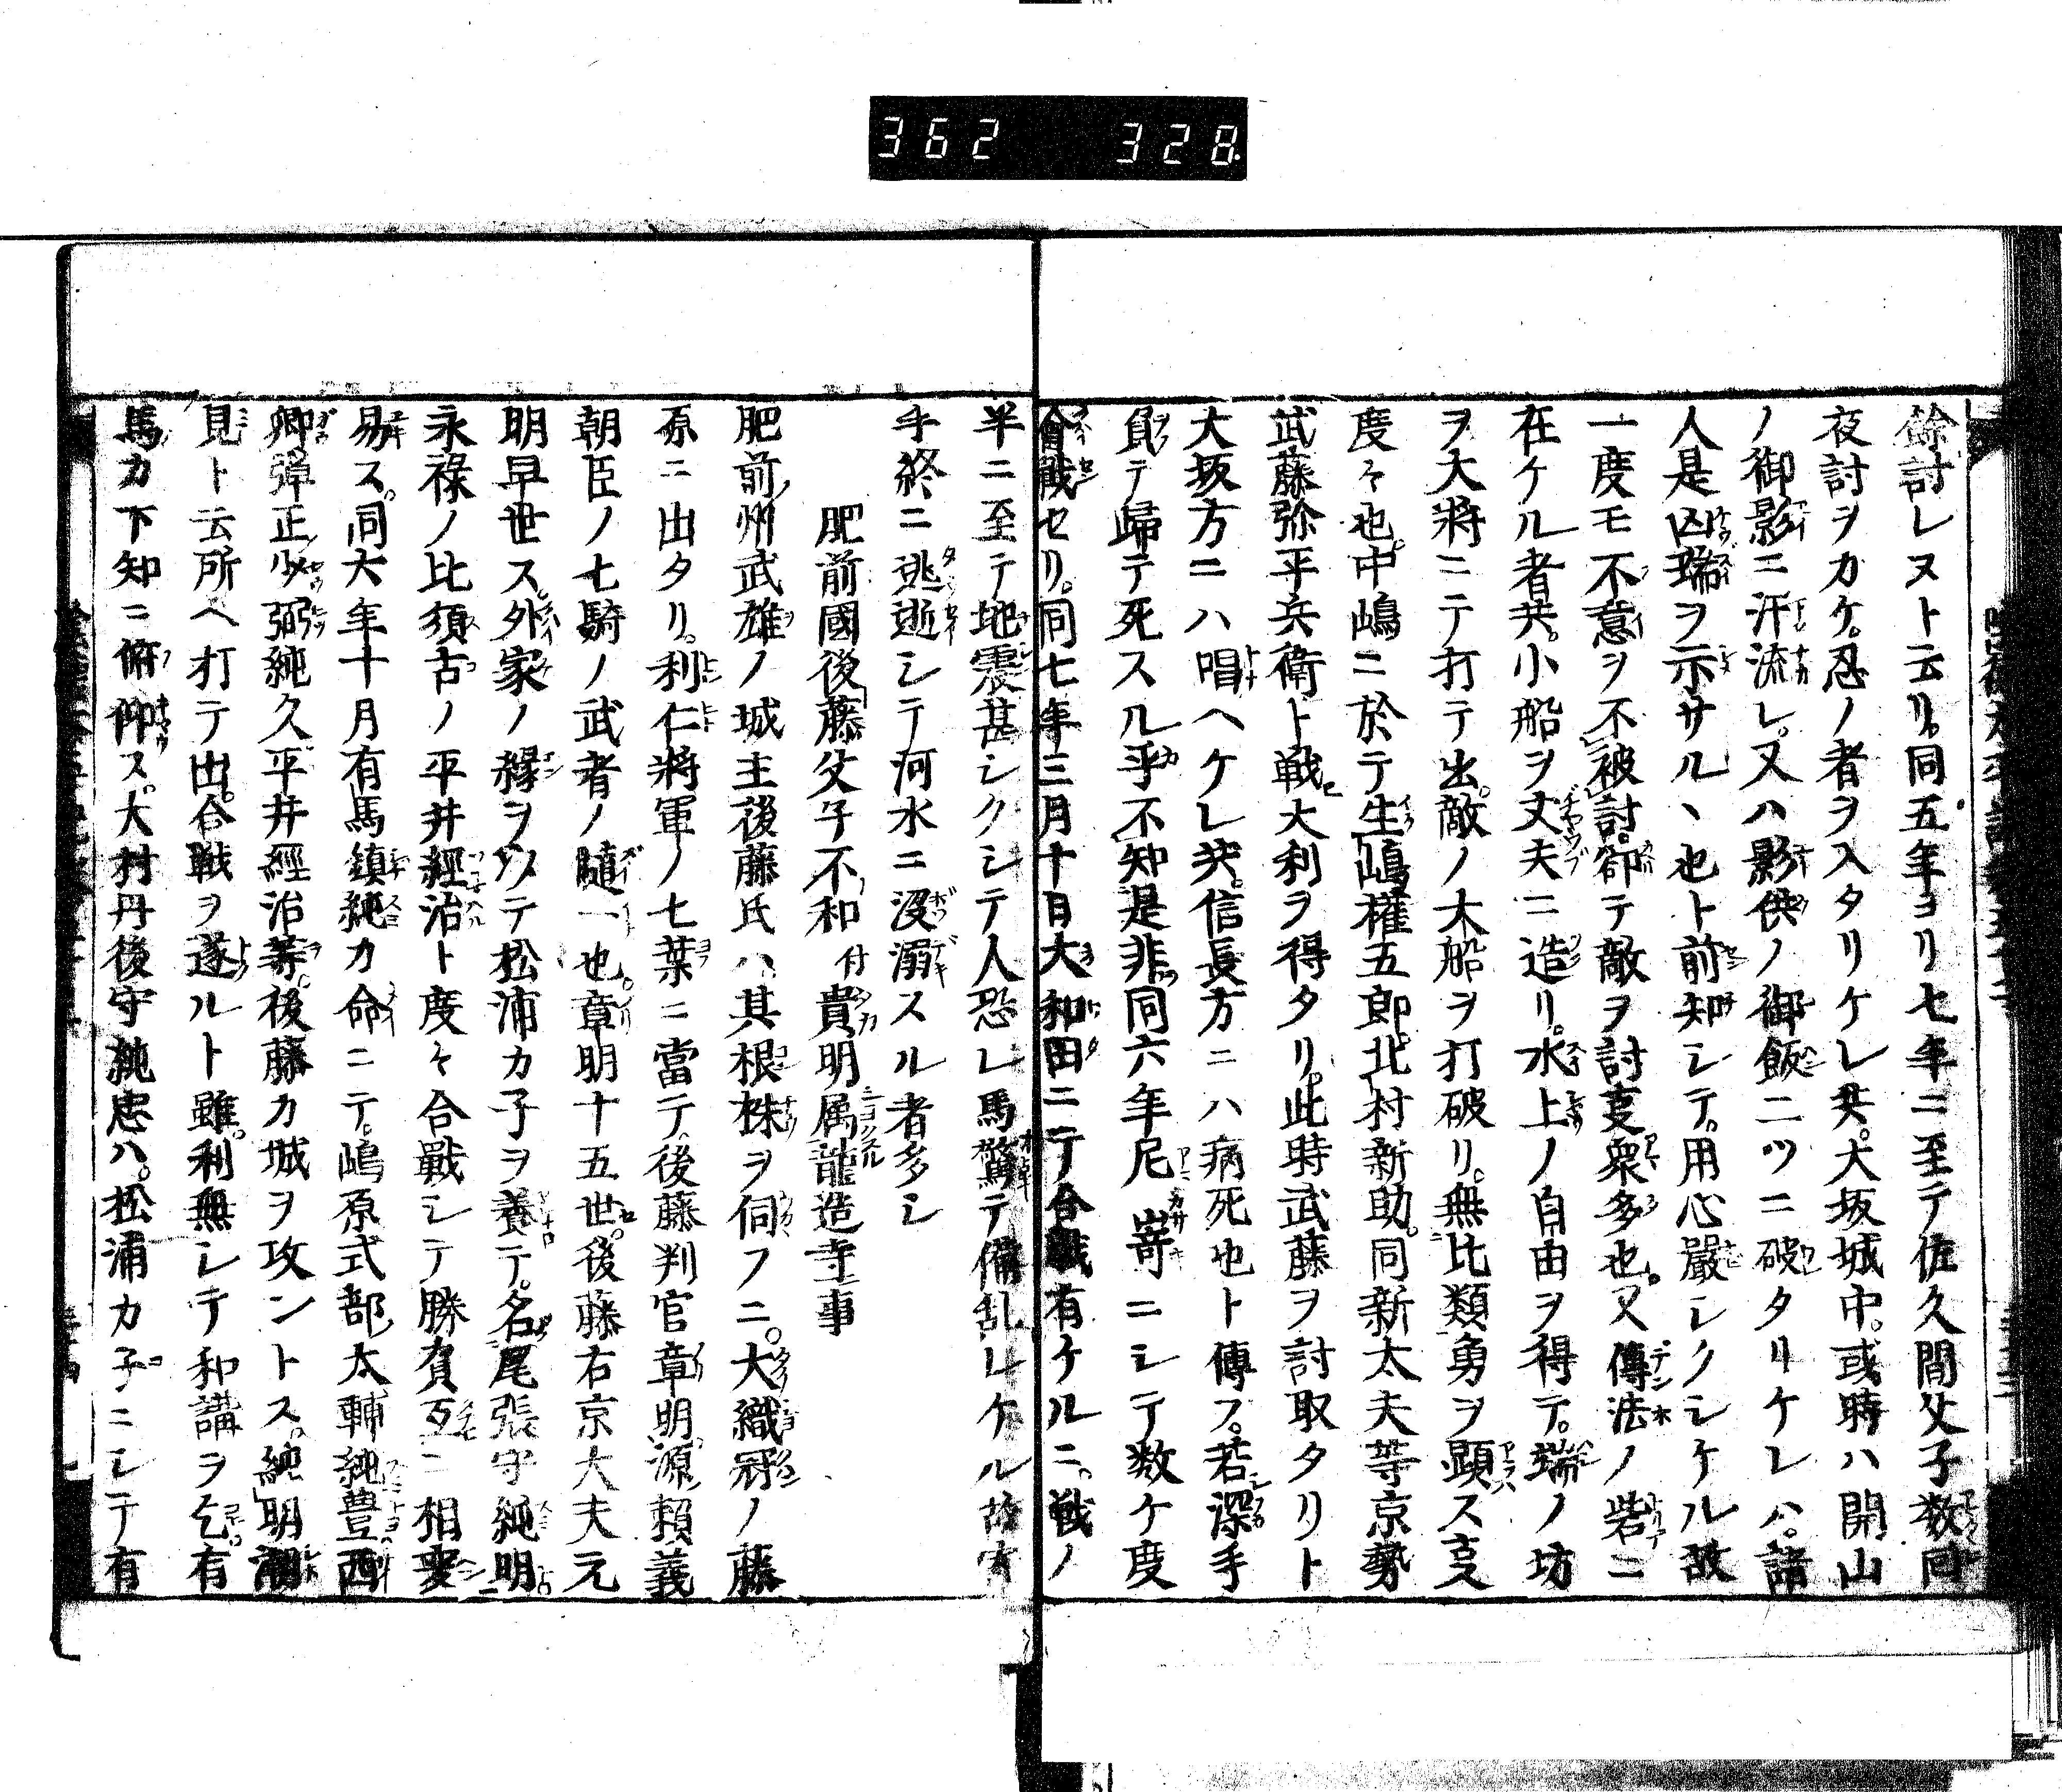 362 328
餘討レヌト云リ。同五年ヨリ七年ニ至テ佐久間父子数回
夜討ヲカケ。忍ノ者ヲ入タリケレ共。大坂城中。或時ハ開山
ノ御影ニ汗流レ。又ハ影供ノ御飯二ツニ破タリケレハ。諸
人是凶瑞ヲ示サル丶也ト前知シテ。用心嚴シクシケル故
一度モ不意ヲ不被討。卻テ敵ヲ討叓衆多也。又傳法ノ砦ニ
在ケル者共。小船ヲ丈夫ニ造リ。水上ノ自由ヲ得テ。端ノ坊
ヲ大將ニテ打テ出。敵ノ木船ヲ打破リ。無比類勇ヲ顕ス叓
度々也。中嶋ニ於テ生嶋權五郎。北村新助。同新太夫等京勢
武藤弥平兵衛ト戦。大利ヲ得タリ。此時武藤ヲ討取タリト
大坂方ニハ唱ヘケレ共。信長方ニハ病死也ト傳フ。若深手
負テ歸テ死スル乎。不知是非。同六年尼嵜ニシテ数ケ度
會戰セリ。同七年三月十日大和田ニテ合戰有ケルニ。戦ノ
半ニ至テ地震甚シクシテ人恐レ馬驚テ備乱レケル故寄
手終ニ逃逝シテ河水ニ沒溺スル者多シ
肥前國後藤父子不和 付貴明属龍造寺事
肥前州武雄ノ城主後藤氏ハ。其根株ヲ伺フニ。大織冠ノ藤
原ニ出タリ。利仁將軍ノ七葉ニ當テ。後藤判官章明源頼義
朝臣ノ七騎ノ武者ノ随一也。章明十五世。後藤右京大夫元
明早世ス。外家ノ縁ヲ以テ松浦カ子ヲ養テ。名尾張守純明
永祿ノ比須古ノ平井經治ト度々合戰シテ勝負互ニ相変
易ス。同大年十月有馬鎮純カ命ニテ。嶋原式部太輔純豊西
卿弾正少弼純久平井經治等。後藤カ城ヲ攻ントス。純明潮
見ト云所ヘ打テ出。合戦ヲ遂ルト雖。利無シテ和講ヲ乞。有
馬カ下知ニ俯仰ス。大村丹後守純忠ハ。松浦カ子ニシテ有